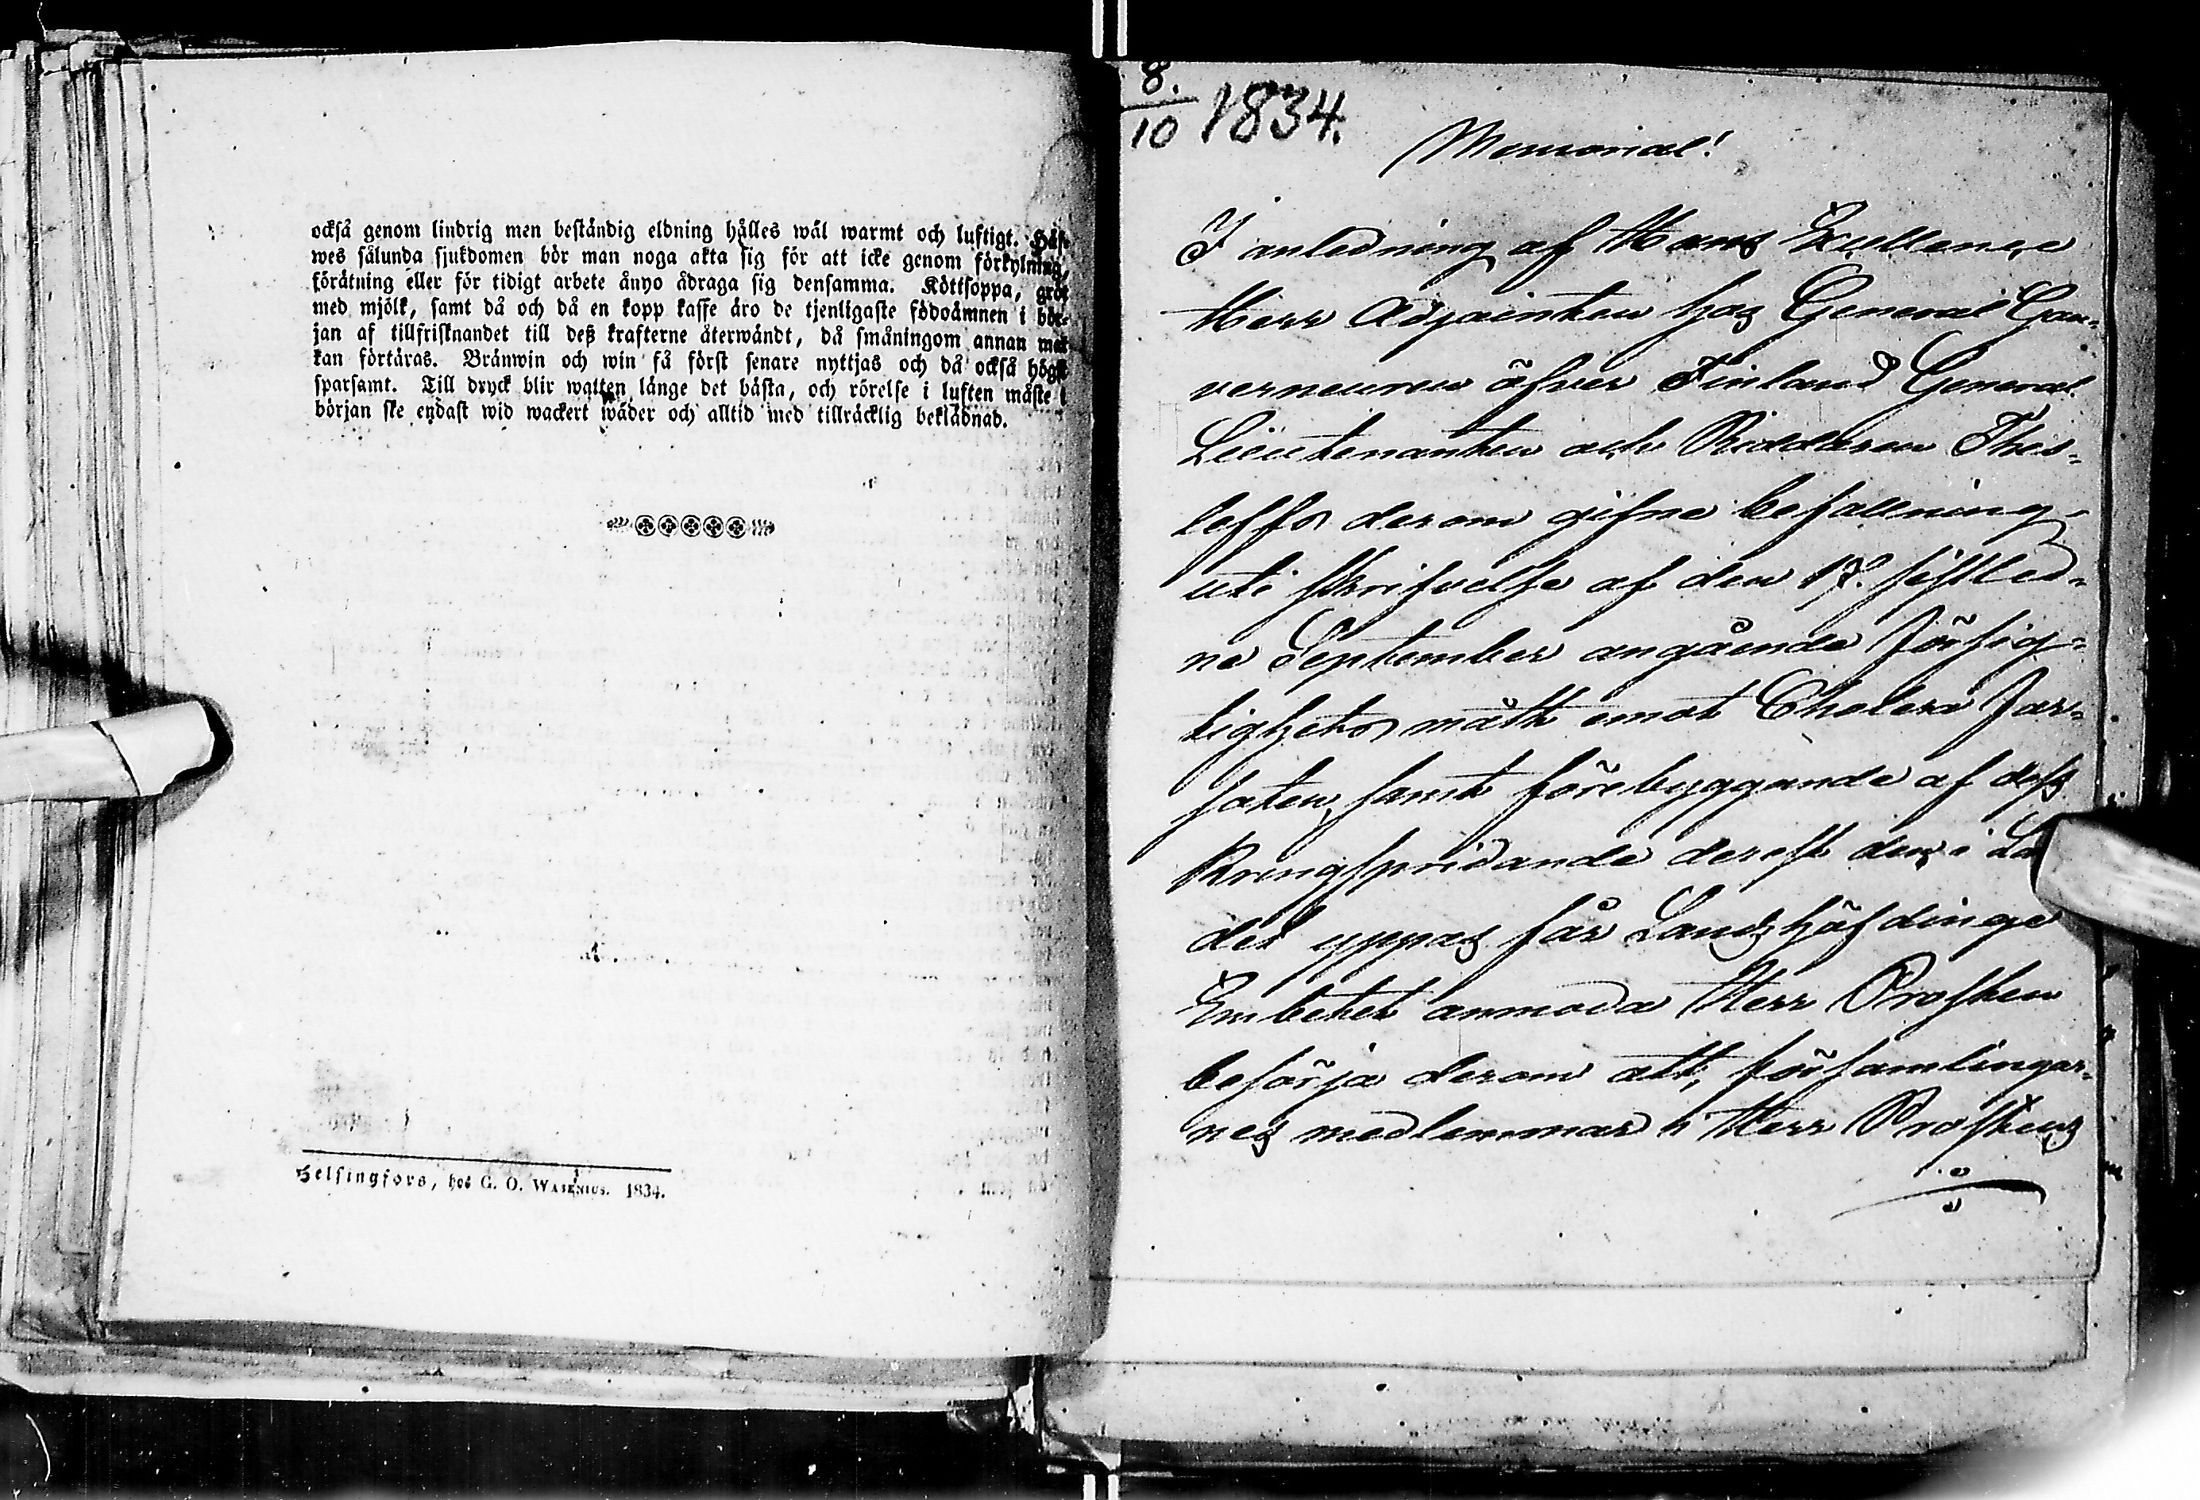 också genom lindrig men beständig eldning hålles wäl warmt och luftigt. Häf-
wes sålunda sjukdomen bör man noga akta sig för att icke genom förkylning,
förätning eller för tidigt arbete ånyo ådraga sig densamma. Köttsoppa, gröt
med mjölk, samt då och då en kopp kaffe äro de tjenligaste födoämnen i bör-
jan af tillfrisknandet till deß krafterne återwändt, då småningom annan mat
kan förtäras. Bränwin och win få först senare nyttjas och då också högst
sparsamt. Till dryck blir watten länge det bästa, och rörelse i luften måste i
början ske endast wid wackert wäder och alltid med tillräcklig beklädnad.
Helsingfors, hos G. O. WASENIUS. 1834.
8./10 1834.
Memorial!
I anledning af Hans Excellence
Herr Adjointen hos General Gou-
verneuren öfver Finland General
Lieutenanten och Riddaren Thes-
leffs derom gifne befallning,
uti skrifvelse af den 17. sistled-
ne September angående försig-
tighets mått emot Cholera far-
soten, samt förebyggande af dess
kringspridande derest den i Lan
det yppas får Landshöfdinge
Embetet anmoda Herr Prosten
besörja derom att, församlingar-
nes medlemmar i Herr Prostens